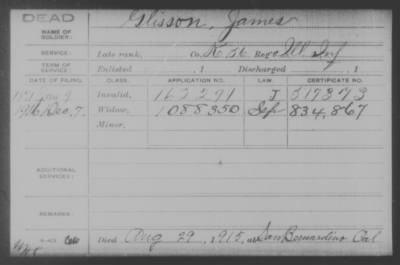 DEAD
NAME OF SOLDIER: Glisson, James
SERVICE: Late rank, Co. K, 56 Reg't Ill Inf
TERM OF SERVICE: Enlisted , 1 Discharged , 1
DATE OF FILING. CLASS. APPLICATION NO. LAW. CERTIFICATE NO.
Invalid, J
1916 Dec. 7. Widow, 1088350 Sep 834,867
Minor,
ADDITIONAL SERVICES:
REMARKS:
Died Aug 29, 1915, at San Bernardino Cal